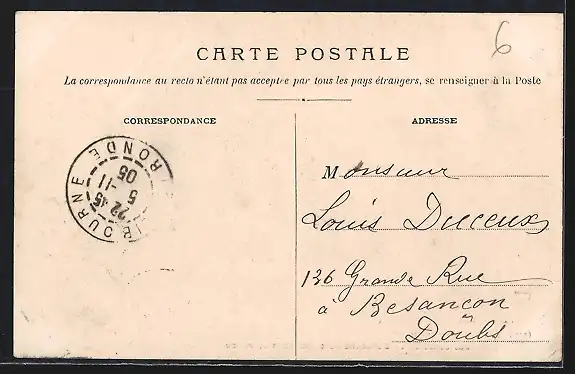 6
CARTE POSTALE
La correspondance au recto n'étant pas acceptée par tous les pays étrangers, se renseigner à la Poste
CORRESPONDANCE
ADRESSE
IBOURNE
22 45
5 -11
05
RONDE
Monsieur
Louis Duceux
136 Grande Rue
à Besançon
Doubs